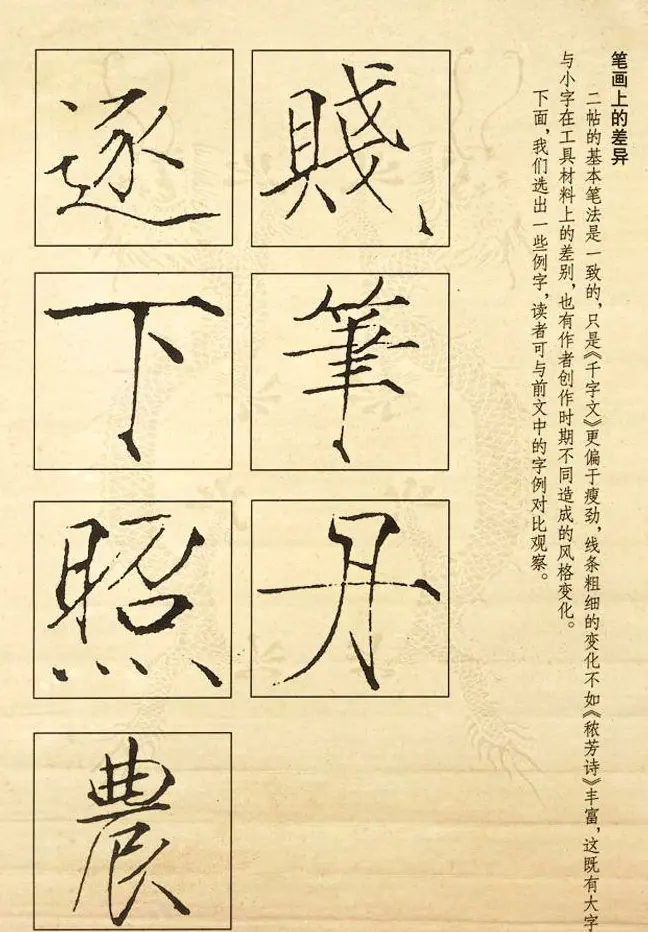 笔画上的差异
二帖的基本笔法是一致的，只是《千字文》更偏于瘦劲，线条粗细的变化不如《秾芳诗》丰富，这既有大字
与小字在工具材料上的差别，也有作者创作时期不同造成的风格变化。
下面，我们选出一些例字，读者可与前文中的字例对比观察。
賤
筆
丹
逐
下
照
農